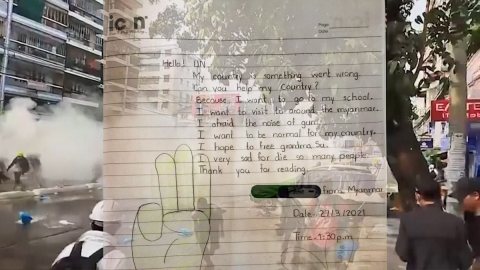 icon
Page
Date
Hello! UN
My country is something went wrong.
Can you help my Country?
Because, I want to go to my school.
I want to visit to around the myanmar.
I afraid the noise of gun.
I want to be normal for my country.
I hope to free grandma Su.
I very sad for die so many people.
Thank you for reading.
from Myanmar
Date - 27/3/2021
Time - 1:30 p.m